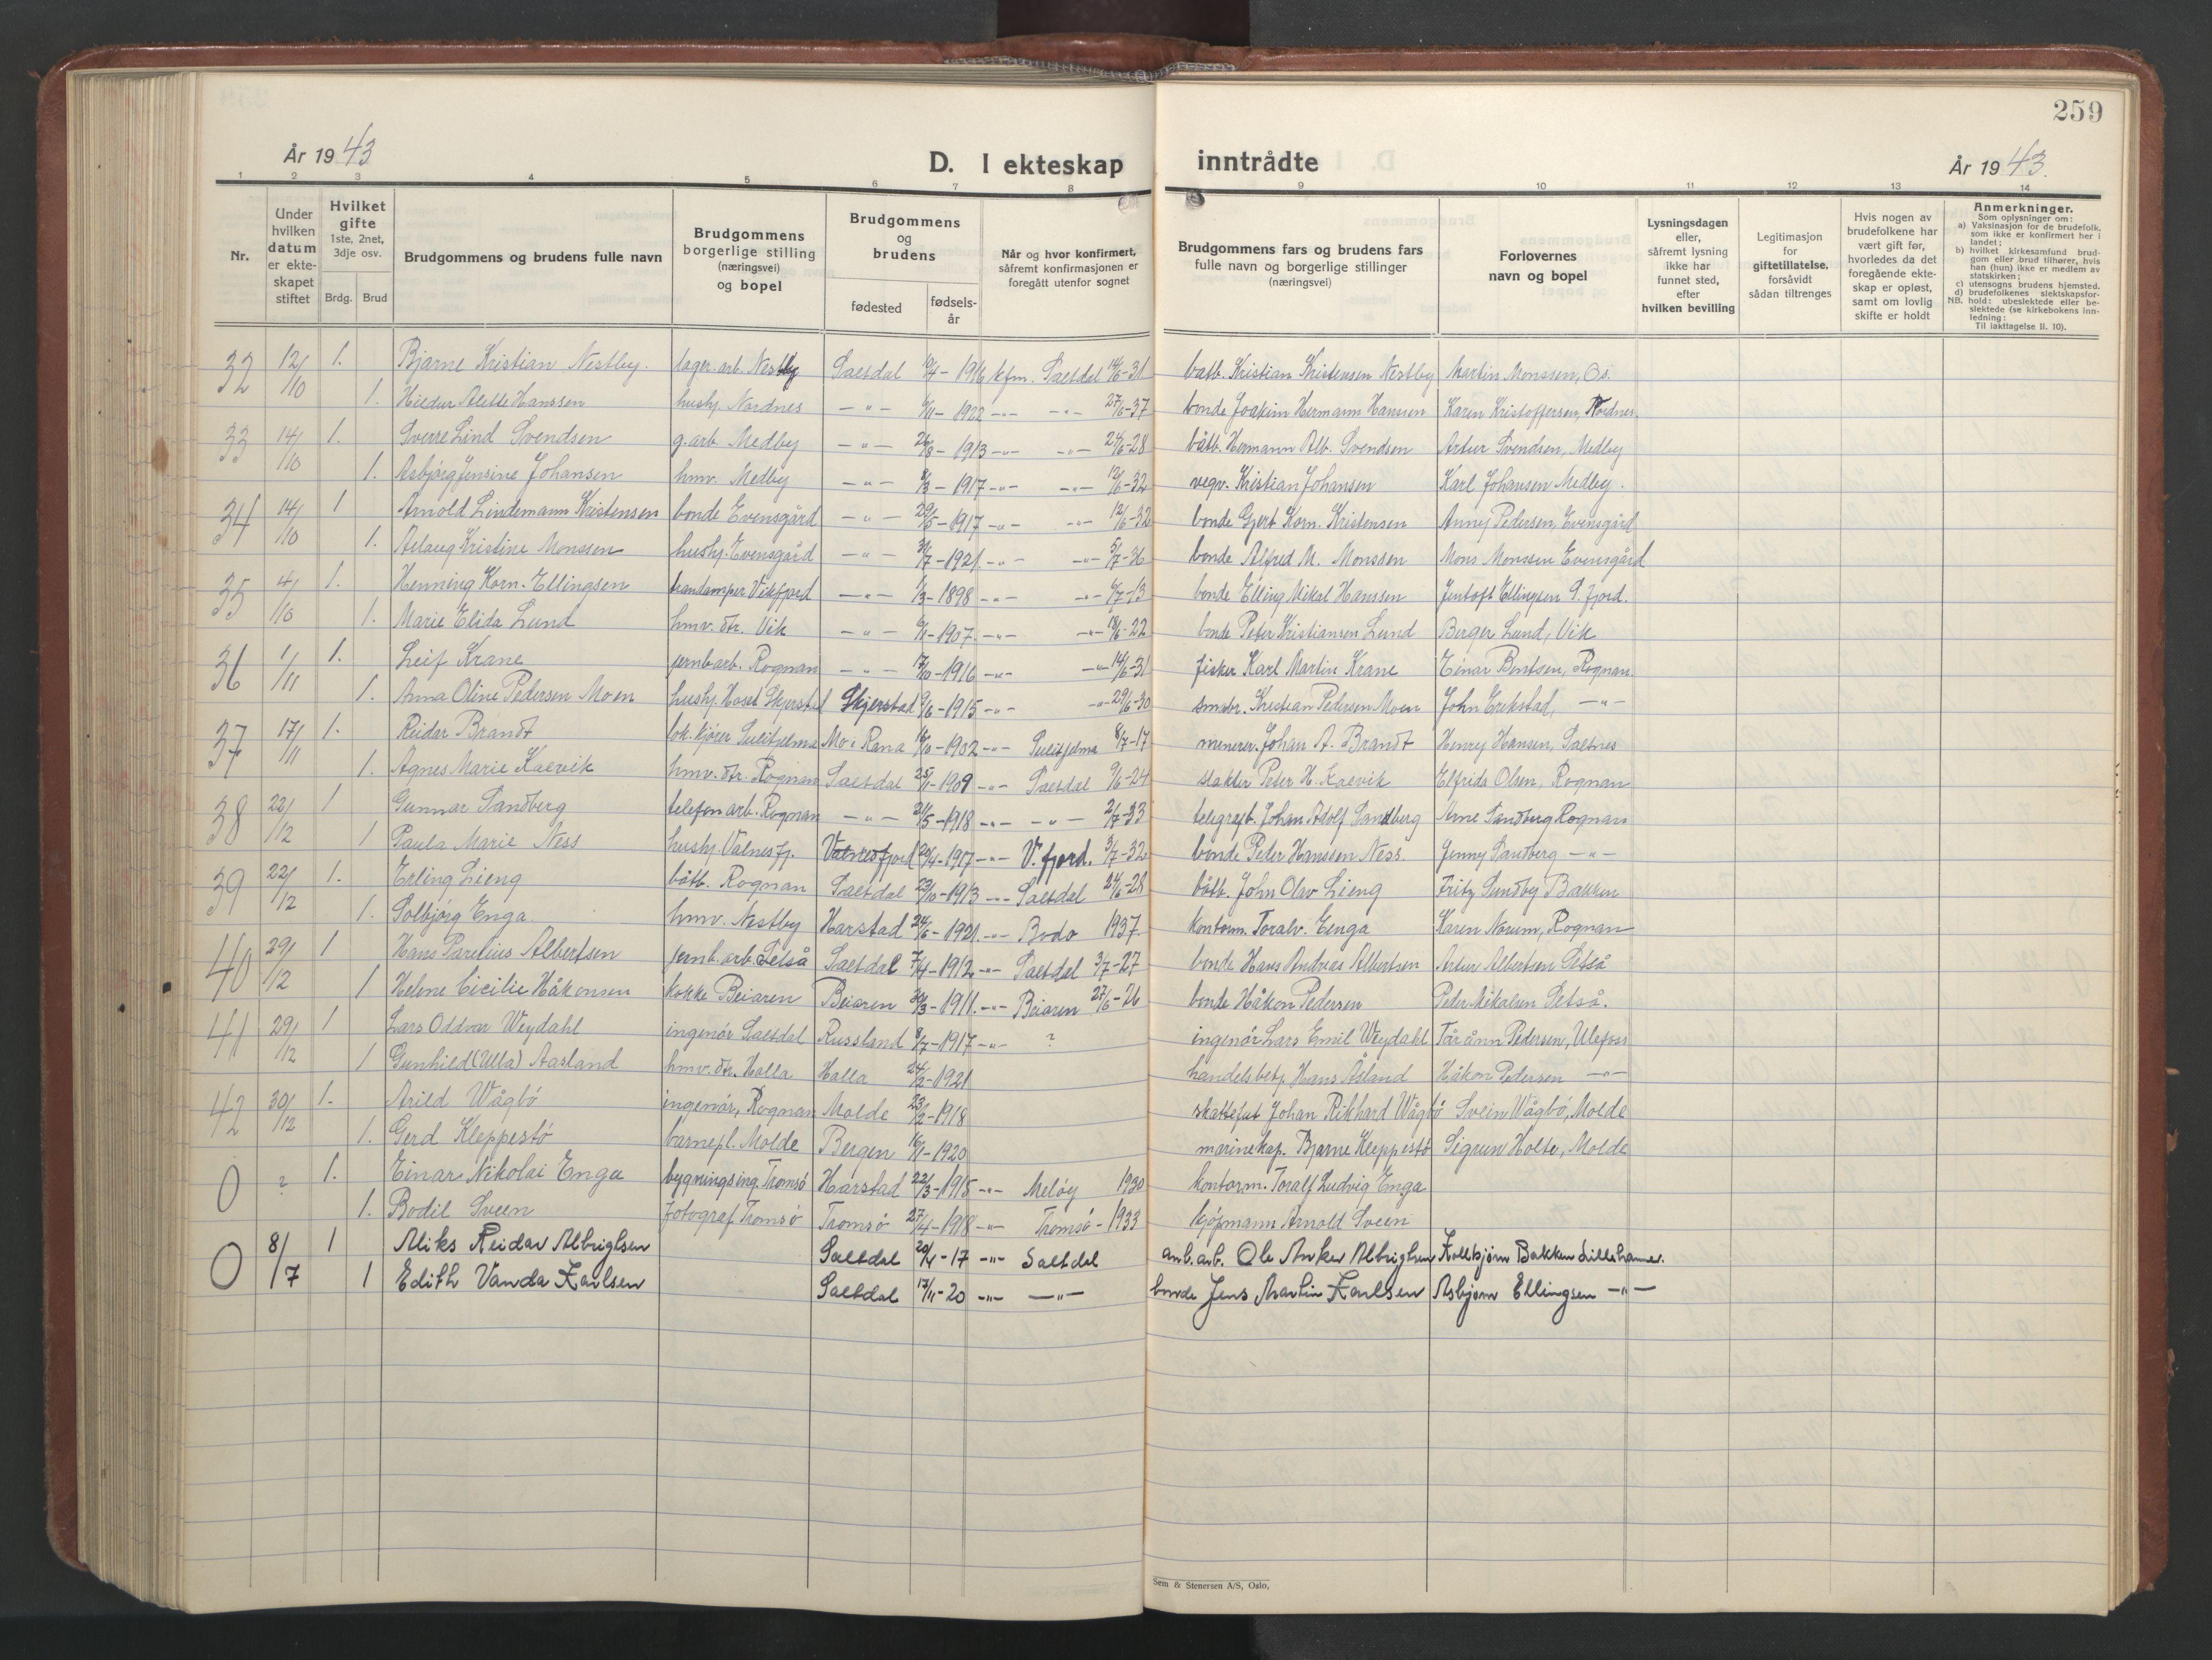 259
År 1943
D. I ekteskap inntrådte
År 1943.
1 2 3 4 5 6 7 8 9 10 11 12 13 14
Nr.
Under hvilken datum er ekte-skapet stiftet
Hvilket gifte 1ste, 2net, 3dje osv.
Brdg. Brud
Brudgommens og brudens fulle navn
Brudgommens borgerlige stilling (næringsvei) og bopel
Brudgommens og brudens
fødested
fødsels-år
Når og hvor konfirmert, såfremt konfirmasjonen er foregått utenfor sognet
Brudgommens fars og brudens fars fulle navn og borgerlige stillinger (næringsvei)
Forlovernes navn og bopel
Lysningsdagen eller, såfremt lysning ikke har funnet sted, efter hvilken bevilling
Legitimasjon for giftetillatelse, sådan tiltrenges
Hvis nogen av brudefolkene har vært gift før, hvorledes da det foregående ekte-skap er opløst, samt om lovlig skifte er holdt
Anmerkninger.
Som oplysninger om:
a) Vaksinasjon for de brudefolk, som ikke er konfirmert her i landet;
b) hvilket kirkesamfund brud-gom eller brud tilhører, hvis han (hun) ikke er medlem av statskirken;
c) utensogns brudens hjemsted.
d) brudefolkenes slektskapsfor-
NB. hold: ubeslektede eller be-slektede (se kirkebokens inn-ledning:
Til iakttagelse II. 10).
32 12/10 1. Bjarne Kristian Nestby. lager.arb. Nestby Saltdal 10/4-1916 kfm. Saltdal 14/6-31 båtb. Kristian Kristensen Nestby Martin Monssen, Os.
1. Hildur Alette Hanssen hushj. Nordnes -"- 6/11-1922 -"- -"- 27/6-37 bonde Joakim Hermann Hanssen Karen Kristoffersen, Nordnes.
33 14/10 1. Sverre Lind Svendsen g.arb. Medby -"- 26/8-1913 -"- -"- 24/6-28 båtb. Hermann Alb. Svendsen Artur Svendsen, Medby
1. Asbjørg Jensine Johansen hmv. Medby -"- 8/3-1917 -"- -"- 12/6-32 vegv. Kristian Johansen Karl Johansen Medby.
34 14/10 1 Arnold Lindemann Kristensen bonde Evensgård -"- 29/5-1917 -"- -"- 12/6-32 bonde Gjert Korn. Kristensen Anny Pedersen, Evensgård
1. Aslaug Kristine Monssen hushj. Evensgård -"- 31/7-1921. -"- -"- 5/7-36 bonde Alfred M. Monssen Mons Monssen Evensgård
35 4/10 1. Henning Korn. Ellingsen Vikfjord -"- 1/3-1898 -"- -"- 6/7-13 bonde Elling Mikal Hanssen Jentoft Ellingsen S. fjord.
1. Marie Elida Lund hmv. dtr. Vik -"- 6/11-1907. -"- -"- 18/6-22 bonde Peter Kristiansen Lund Berger Lund, Vik
36 1/11 1. Leif Krane jernb.arb. Rognan -"- 17/10-1916 -"- -"- 14/6-31 fisker Karl Martin Krane Einar Bentsen, Rognan.
1. Anna Oline Pedersen Moen hushj. Hoset Skjerstad Skjerstad 9/6-1915 -"- -"- 29/6-30 småbr. Kristian Pedersen Moen John Erikstad, -"-
37 17/11 1. Reidar Brandt lok. kjører Sulitjelma Mo i Rana 16/10-1902 -"- Sulitjelma 8/7-17 minerer. Johan A. Brandt Henry Hansen, Saltnes
1. Agnes Marie Kaevik hmv. dtr. Rognan Saltdal 25/11-1909 -"- Saltdal 9/6-24 slakter Peter H. Kaevik Elfrida Olsen, Rognan
38 22/12 1 Gunnar Sandberg telefonarb. Rognan -"- 21/5-1918 -"- -"- 2/7-33 telegrafb. Johan Adolf Sandberg Arne Sandberg Rognan
1 Paula Marie Ness hushj. Valnesfj. Valnesfjord 29/4-1917 -"- V. fjord. 3/7-32 bonde Peder Hanssen Ness. Jenny Sandberg -"-
39 22/12 1. Erling Lieng båtb. Rognan Saltdal 23/10-1913 -"- Saltdal 24/6-28 båtb. John Olav Lieng Fritz Sundby Bakken
1. Solbjørg Enga. hmv. Nestby Harstad 24/6-1921. -"- Bodø 1937. kontorm. Toralv. Enga Karen Norum, Rognan
40 29/12 1 Hans Parelius Albertsen jernb. arb. Setså Saltdal 7/4-1912 -"- Saltdal 3/7-27 bonde Hans Andreas Albertsen Artur Albertsen Setså
1 Helene Cicilie Håkonsen kokke Beiaren Beiaren 30/3-1911. -"- Beiaren 27/6-26 bonde Håkon Pedersen Peder Mikalsen Setså.
41 29/12 1 Lars Oddvar Weydahl ingenør Saltdal Russland 8/7-1917 -"- ? ingenør Lars Emil Weydahl Pedersen, Ulefoss
1 Gunhild (Ulla) Aasland hmv. dtr. Holla Holla 24/2-1921 handelsbety. Hans Åsland Håkon Pedersen -"-
42 30/12 1. Arild Wågbø ingenør, Rognan Molde 23/2-1918 skattefut Johan Rikhard Wågbø Svein Wågbø, Molde
1. Gerd Kleppestø barnepl. Molde Bergen 16/11-1920 marinekap. Bjarne Kleppestø Sigrun Holte, Molde
0 ? 1. Einar Nikolai Enga bygningsing. Tromsø Harstad 22/3-1915 -"- Meløy 1930 kontorm. Toralf Ludvig Enga
1. Bodil Sveen fotograf Tromsø Tromsø 27/4-1918 -"- Tromsø - 1933 kjøpmann Arnold Sveen
0 8/7 1 Aliks Reidar Albrigtsen Saltdal 20/4-17 -"- Saltdal anb.arb. Ole Anker Albrigtsen Kolbjørn Bakken Lillehamer.
1 Edith Vanda Karlsen Saltdal 17/11-20 -"- -"- bonde Jens Martin Karlsen Asbjørn Ellingsen -"-
Sem & Stenersen A/S, Oslo,